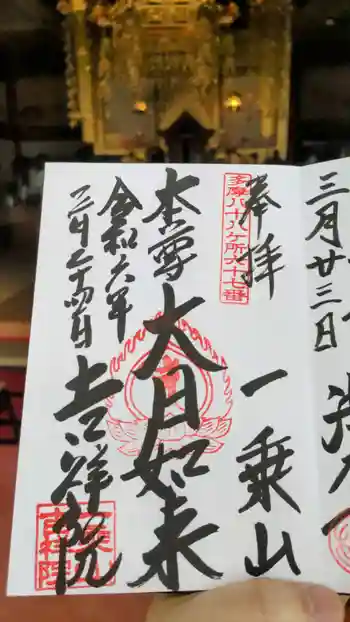 三月廿三日
奉拝
多摩八十八ヶ所六十七番
一乗山
本尊
大日如来
令和六年
三月二十四日
吉祥院
一乗山
吉祥院